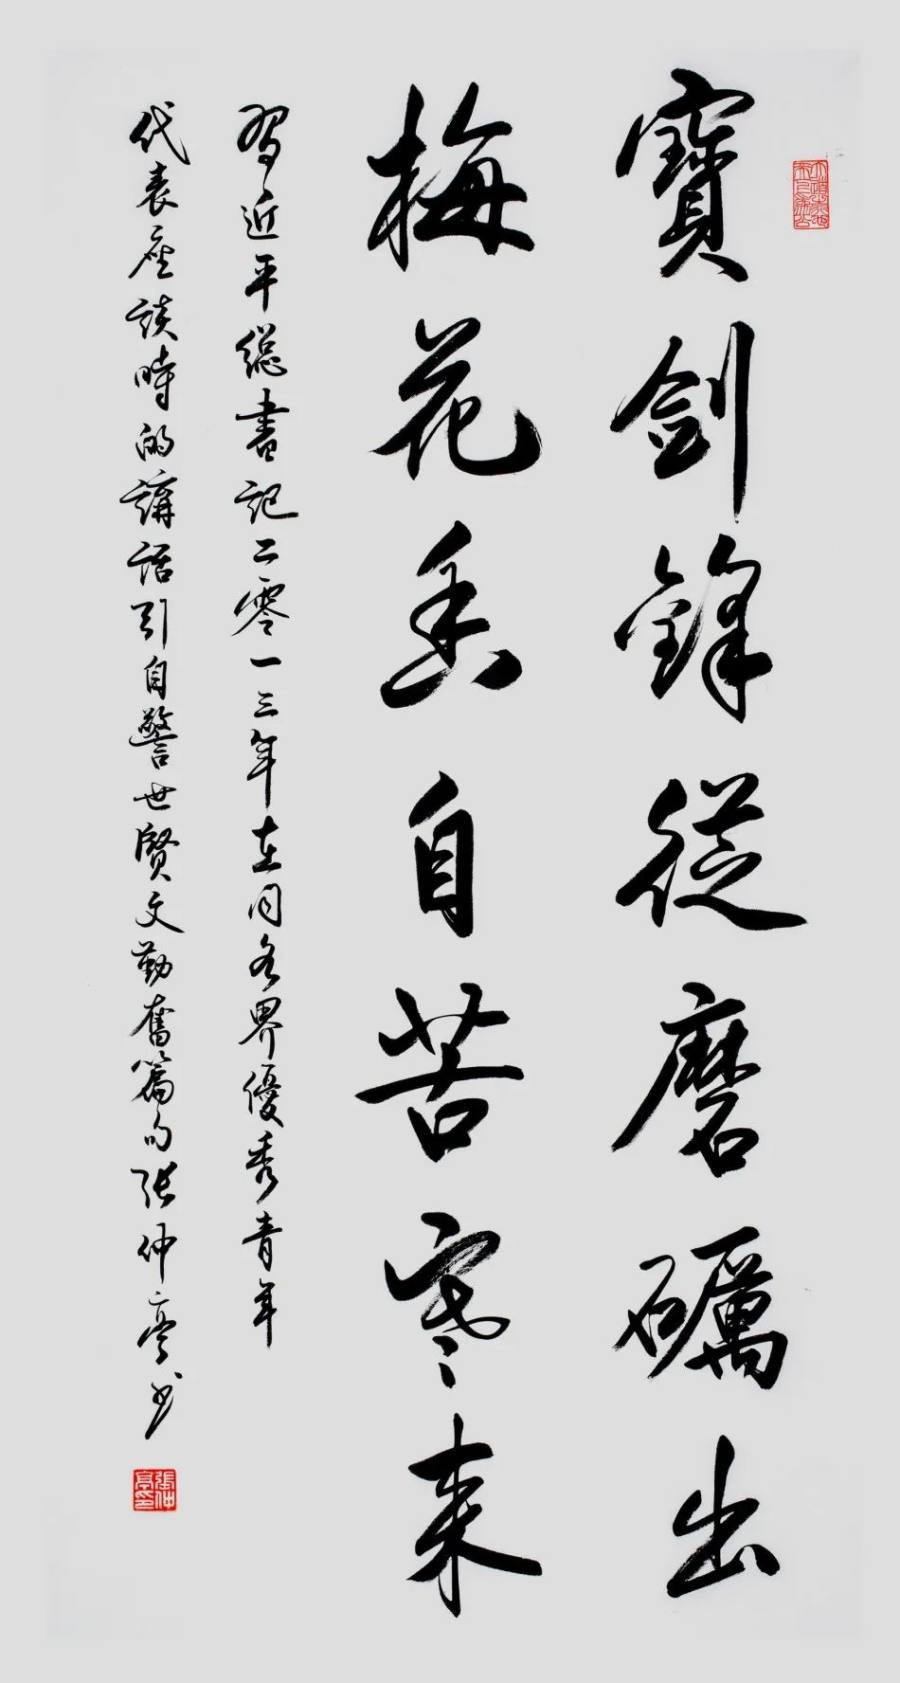 寶劍鋒從磨礪出
梅花香自苦寒来
習近平總書記二零一三年在同各界優秀青年
代表座談時的講話引自警世賢文勤奮篇句張仲亭书
張仲亭印